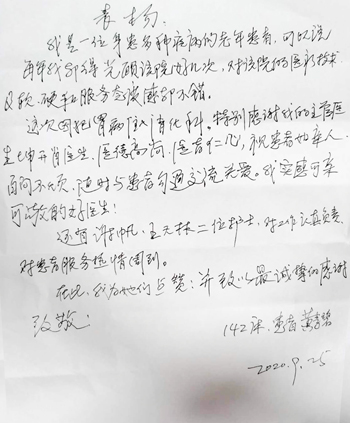 表扬
我是一位身患多种疾病的老年患者,可以说
每年我都得光顾医院好几次,对医院的医疗技术
及软、硬和服务态度感都不错。
这次因犯胃病住入消化科。特别感谢我的主管医
生 医生,医德高尚,医者仁心,视患者如亲人,
百问不烦,随时与患者沟通交流关爱。我实感可亲
可敬的好医生!
还有 二位护士,对工作认真负责,
对患者服务热情周到。
在此,我为她们点赞:并致以最诚挚的感谢
致敬:
142床.患者
2020.9.25